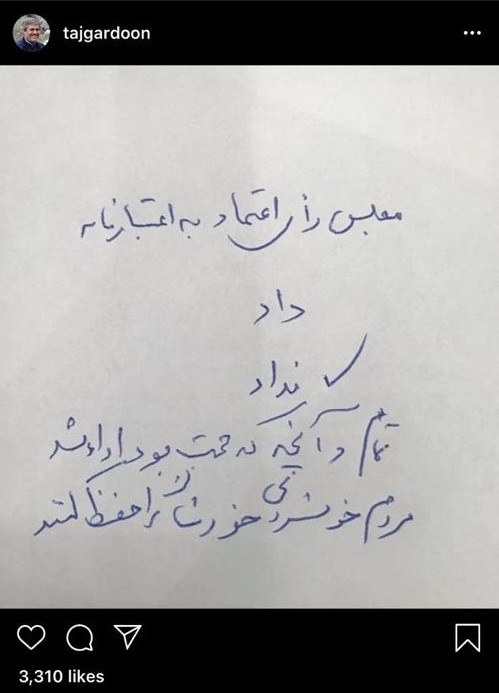 tajgardoon
مجلس رأی اعتماد به اعتبارنامه
داد
✓ نداد
تمام و آنچه که حجت بود ادا شد
مردم خونسردی خودشان را حفظ کنند
3,310 likes